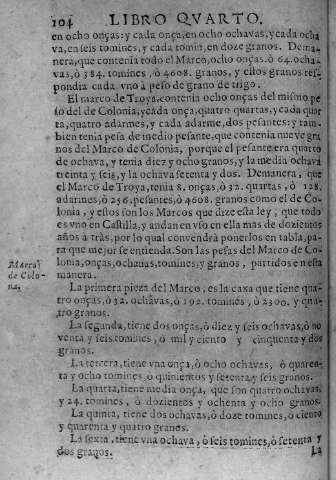 104 LIBRO QVARTO.
en ocho onças: y cada onça, en ocho ochavas, y cada ocha
va, en seis tomines, y cada tomin, en doze granos. Dema
nera, que contenia todo el Marco, ocho onças, ò 64. ocha-
vas, ò 384. tomines, ò 4608. granos, y estos granos res-
pondia cada vno à peso de grano de trigo.
El marco de Troya, contenia ocho onças del mismo pe
so del de Colonia, y cada onça, quatro quartas, y cada quar
ta, quatro adarmes, y cada adarme, dos pesantes: y tam-
bien tenia pesa de medio pesante, que contenia nueve gra
nos del Marco de Colonia, porque el pesante era quarto
de ochava, y tenia diez y ocho granos, y la media ochava
treinta y seis, y la ochava setenta y dos. Demanera, que
el Marco de Troya, tenia 8. onças, ò 32. quartas, ò 128.
adarmes, ò 256. pesantes, ò 4608. granos como el de Co-
lonia, y estos son los Marcos que dize esta ley, que todo
es vno en Castilla, y andan en vso en ella mas de dozientos
años à tràs, por lo qual convendrà ponerlos en tabla, pa-
ra que mejor se entienda. Son las pesas del Marco de Co-
Marco
de Colo-
nia,
lonia, onças, ochavas, tomines, y granos, partidos en esta
manera.
La primera pieza del Marco, es la caxa que tiene qua-
tro onças, ò 32. ochàvas, ò 192. tomines, ò 2300. y qua-
tro granos.
La segunda, tiene dos onças, ò diez y seis ochavas, ò no
venta y seis tomines, ò mil y ciento y cinquenta y dos
granos.
La tercera, tiene vna onça, ò ocho ochavas, ò quaren-
ta y ocho tomines, ò quinientos y setenta y seis granos.
La quarta, tiene media onça, que son quatro ochavas,
y 24. tomines, ò dozientos y ochenta y ocho granos.
La quinta, tiene dos ochavas, ò doze tomines, ò ciento
y quarenta y quatro granos.
La sexta, tiene vna ochava, ò seis tomines, ò setenta y
dos granos. La